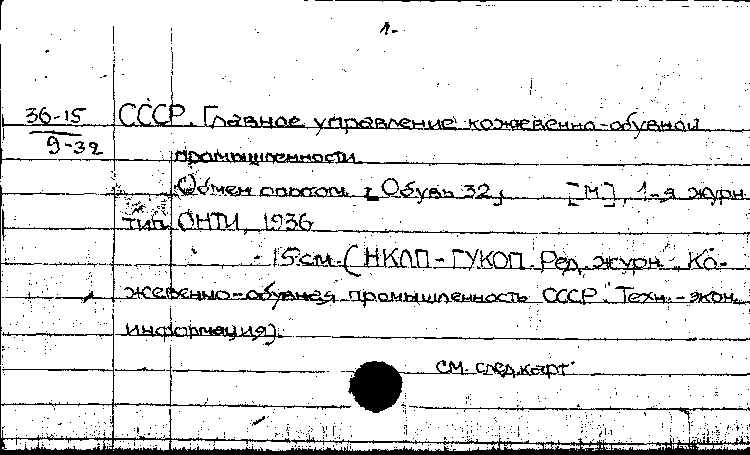 1.
36-15 СССР. Главное управление кожевенно-обувной
9-32 промышленности
Обмен опытом [Обувь 32] [М], 1-я журн.
тип. ОНТИ, 1936
15 см. (НКЛП - ГУКОП. Ред. журн. "Ко-
жевенно-обувная промышленность СССР". Техн.-экон.
информация).
см. след. карт.